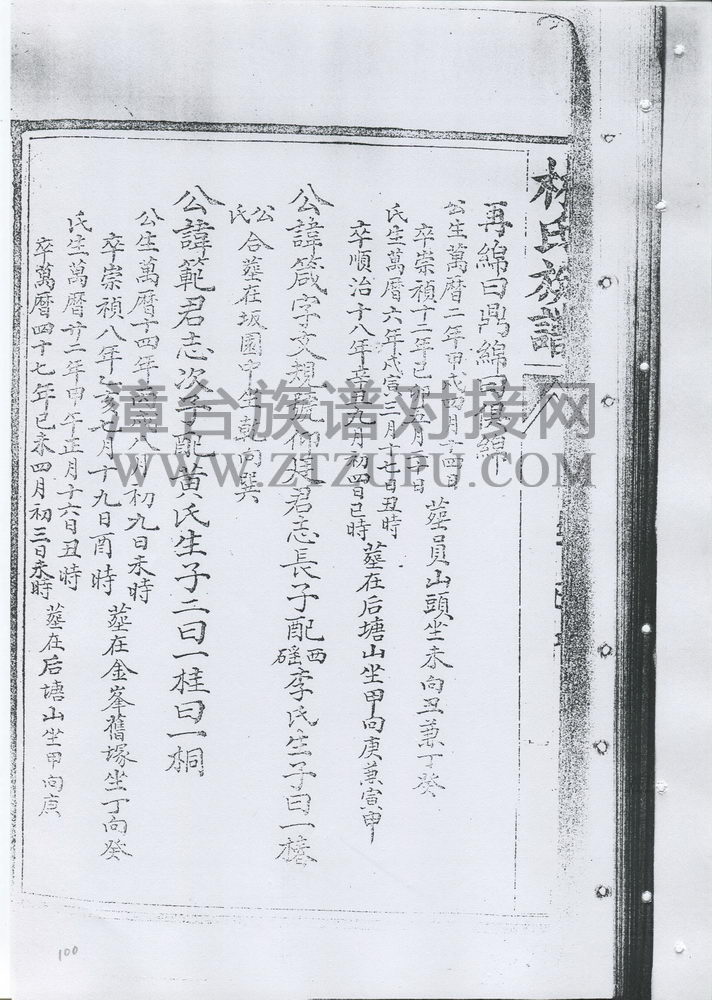 林氏族譜
再綿曰鼎綿曰俱綿
公生萬曆二年甲戌四月十四日
卒崇禎十二年己卯五月十日
墓員山頭坐未向丑兼丁癸
氏生萬曆六年戊寅三月十七日丑時
卒順治十八年辛丑九月初四日巳時
墓在后塘山坐甲向庚兼寅申
公諱箴字文規號仰廷君志長子配西磘李氏生子曰一椿
公氏合墓在坂園中坐乾向巽
公諱範君志次子配黃氏生子二曰一桂曰一桐
公生萬曆十四年丙戌八月初九日未時
卒崇禎八年乙亥七月十九日酉時
墓在金峯舊塚坐丁向癸
氏生萬曆廿二年甲午正月十六日丑時
卒萬曆四十七年己未四月初三日未時
墓在后塘山坐甲向庚
漳台族谱对接网
WWW.ZTZUPU.COM
100